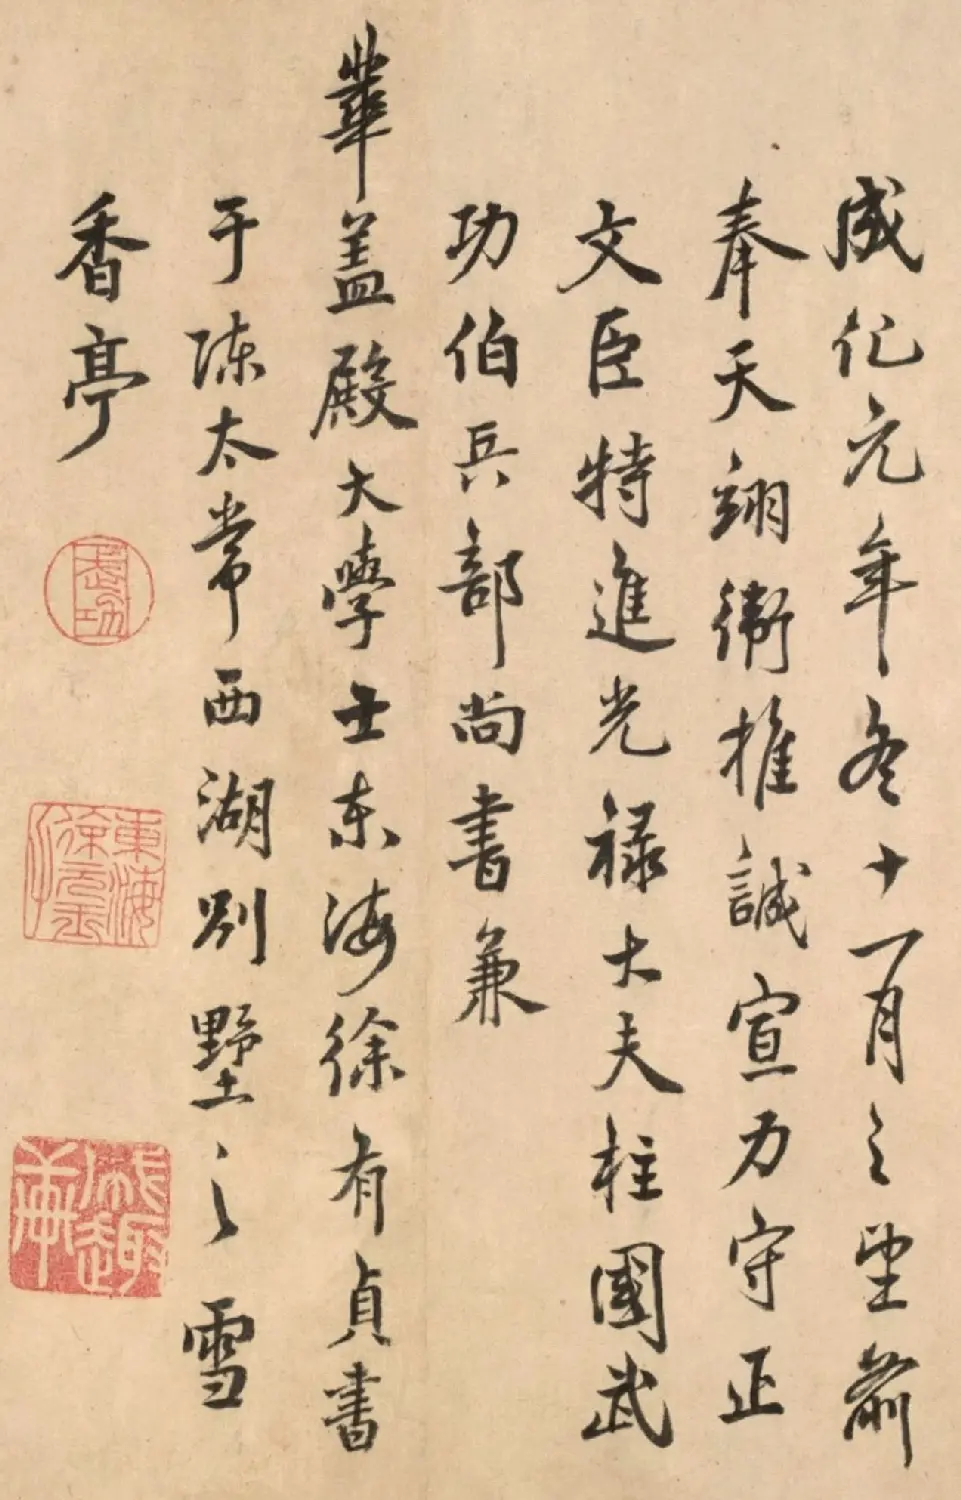 成化元年冬十一月之望前
奉天翊衛推誠宣力守正
文臣特進光禄大夫柱國武
功伯兵部尚書兼
華盖殿大學士东海徐有貞書
于陳太常西湖别墅之雪
香亭
武功
東海徐元玉